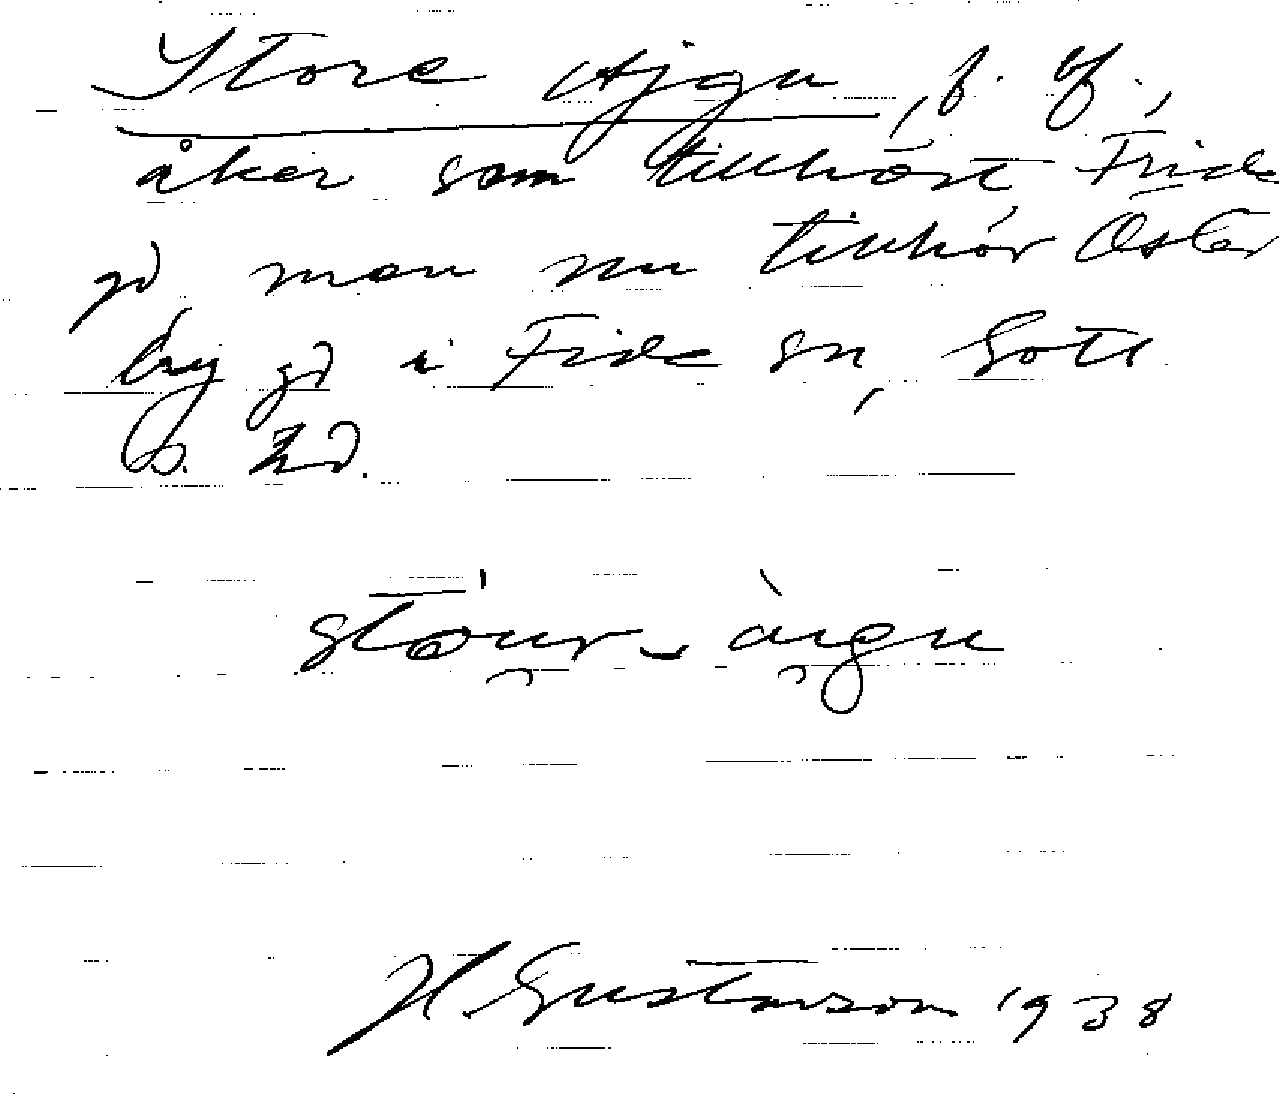 Store Ajgu, f. öf.,
åker som tillhört Fride
gd men nu tillhör Öster
byg gd i Fide sn, Gotl
S. hd.
stōu̯r-ài̯gu
H. Gustavson 1938